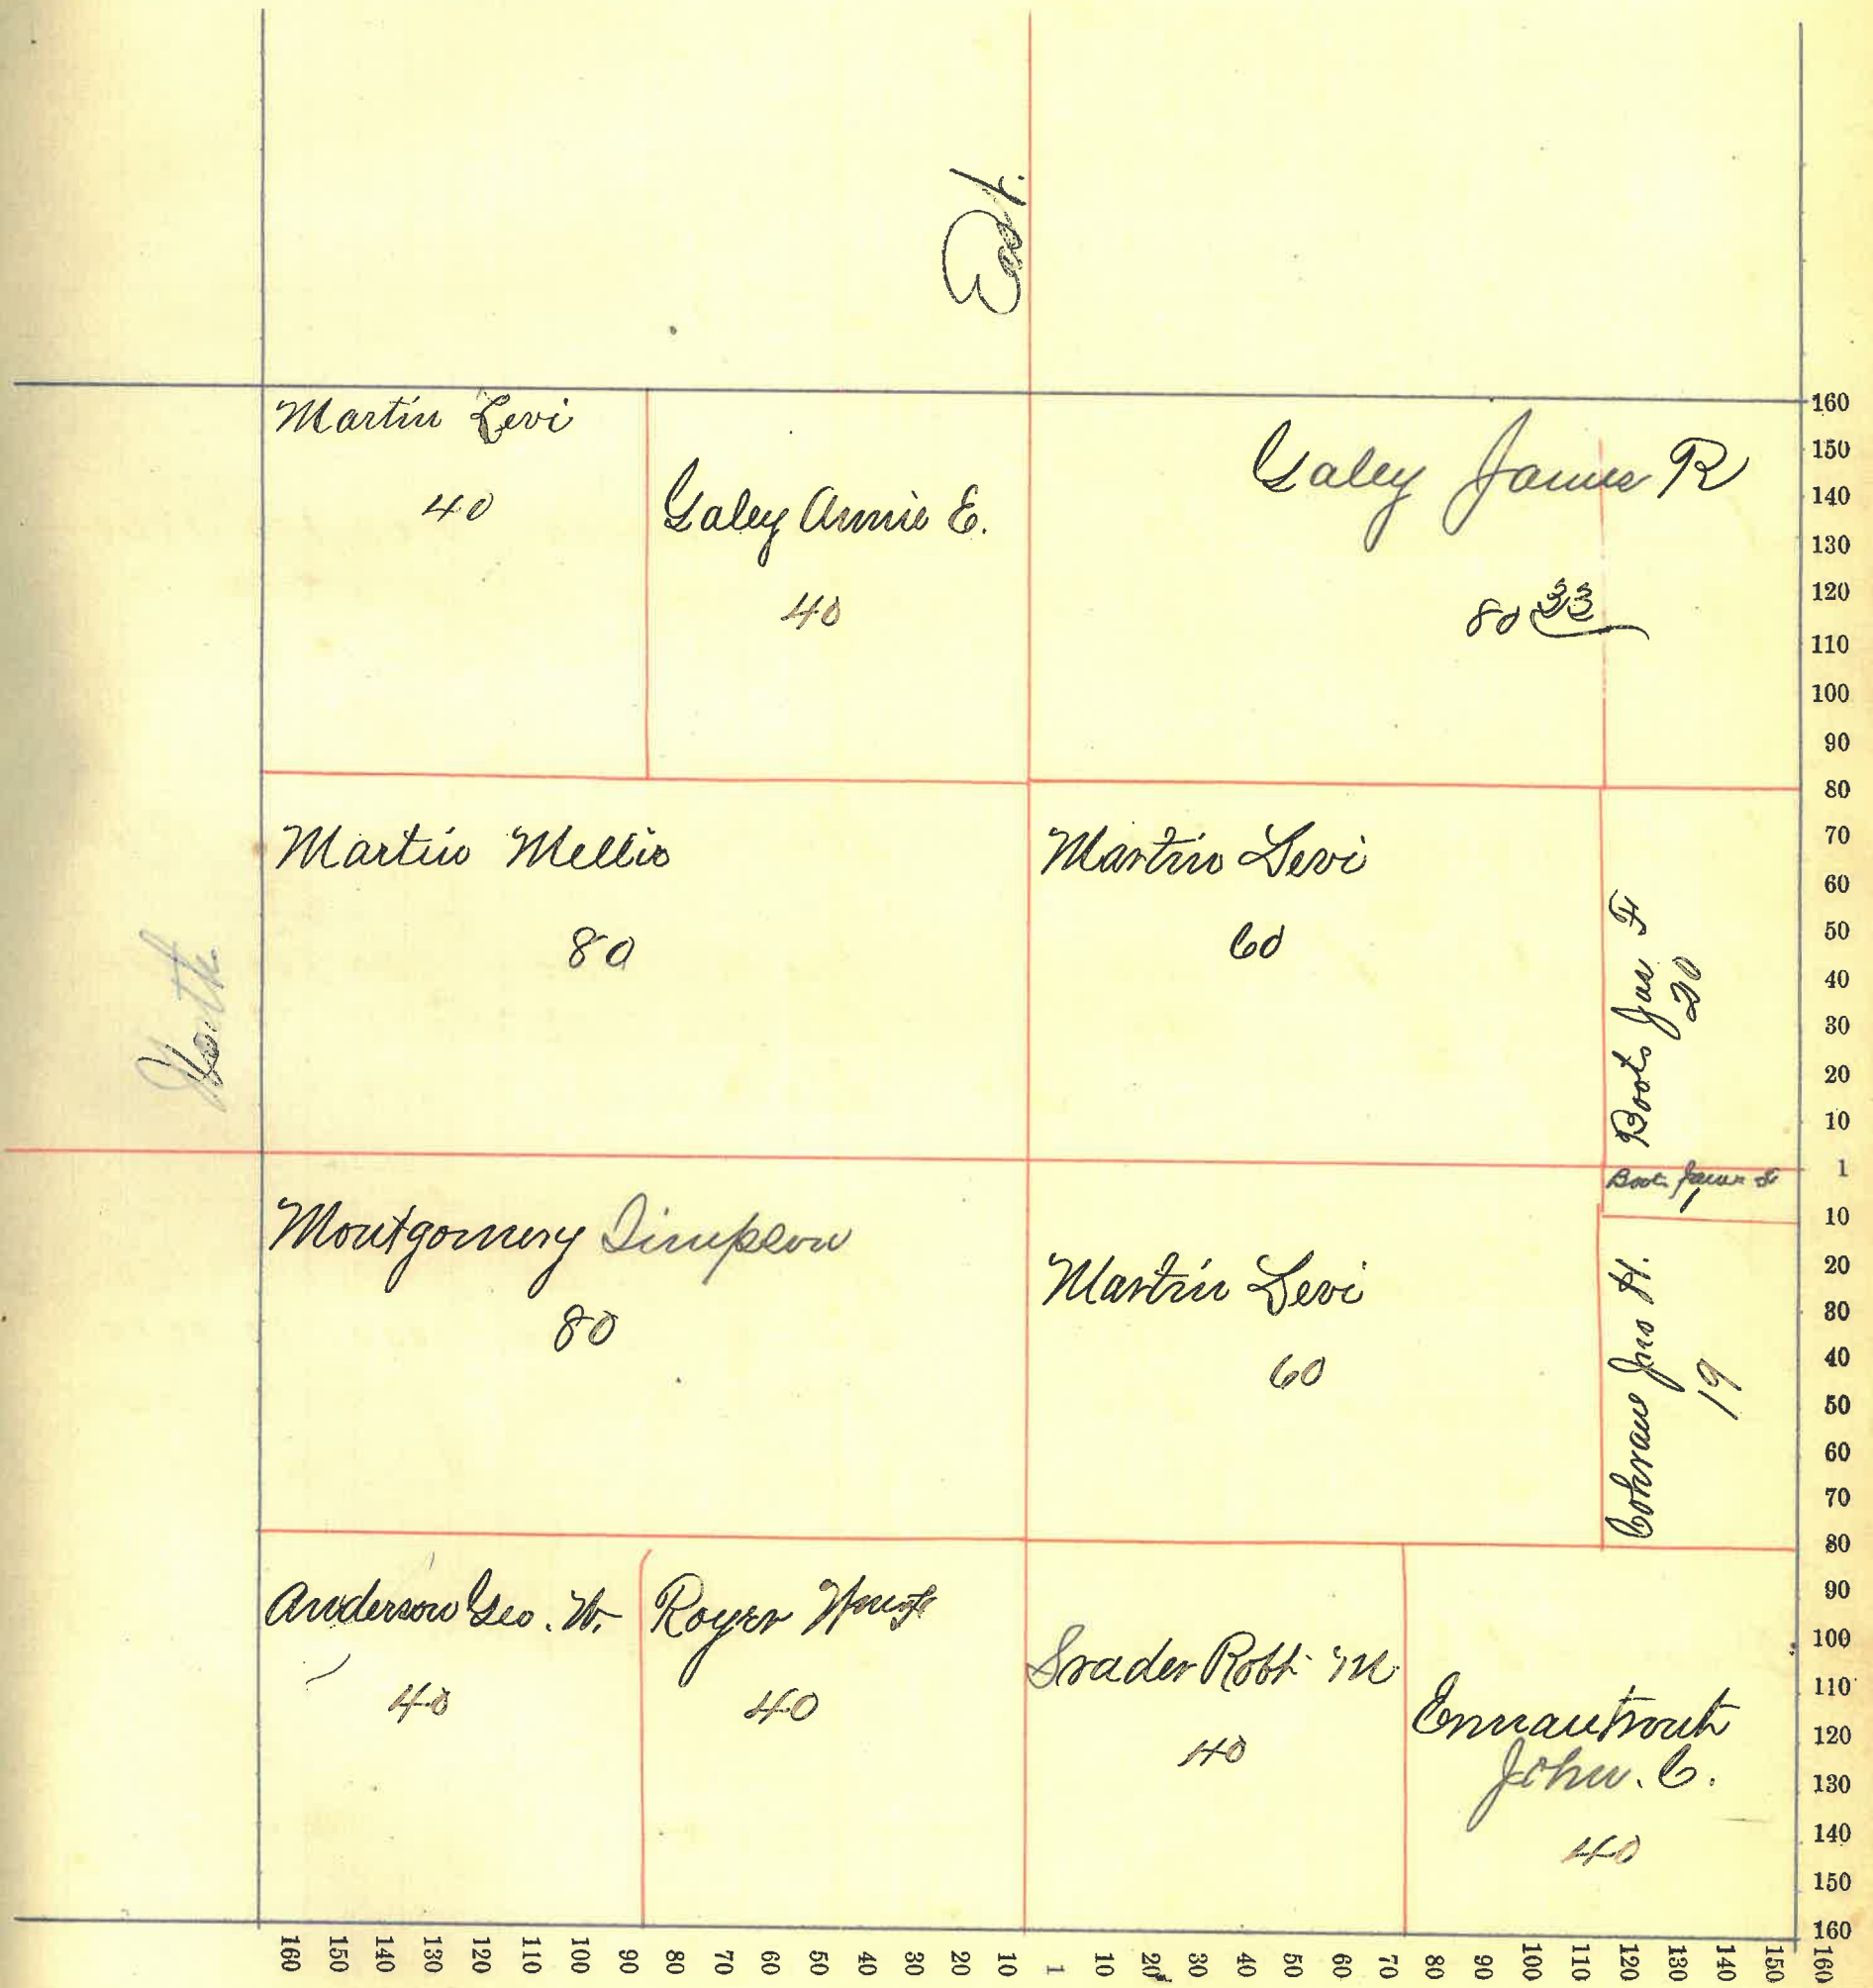 East.
Martin Levi
40
Galey Annie E.
40
Galey James R
80 33
North
Martin Mellie
80
Martin Levi
60
Boots Jas F
20
Boots James F
1
Montgomery Simpson
80
Martin Levi
60
Cohran Jno H.
19
Anderson Geo. W.
40
Royer
40
Srader Robt M
40
Ermantrout
John. C.
40
160
150
140
130
120
110
100
90
80
70
60
50
40
30
20
10
1
10
20
30
40
50
60
70
80
90
100
110
120
130
140
150
160
160 150 140 130 120 110 100 90 80 70 60 50 40 30 20 10 1 10 20 30 40 50 60 70 80 90 100 110 120 130 140 150 160